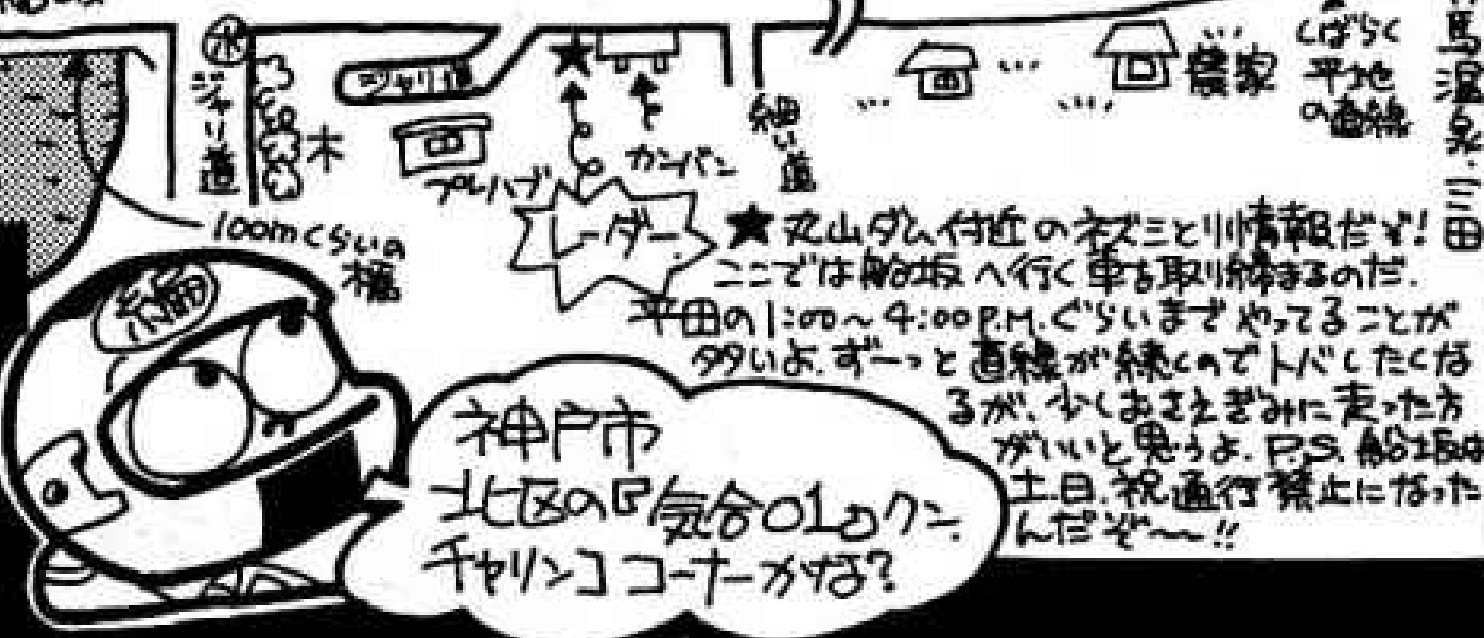 水
ジャリ道
木
ジャリ道
プレハブ
カンバン
レーダー
細い道
農家
しばらく
平地
の直線
馬温泉.三田
100mくらいの
橋
★丸山ダム付近のネズミとり情報だぞ!
ここでは船坂へ行く車を取り締まるのだ.
平日の1:00~4:00P.M.ぐらいまでやってることが
多いよ.ずーっと直線が続くのでトバしたくな
るが、少しおさえぎみに走った方
がいいと思うよ. P.S. 船坂は
土日.祝通行禁止になった
んだぞ~!!
神戸市
北区の
気合01
クン.
チャリンココーナーかな?